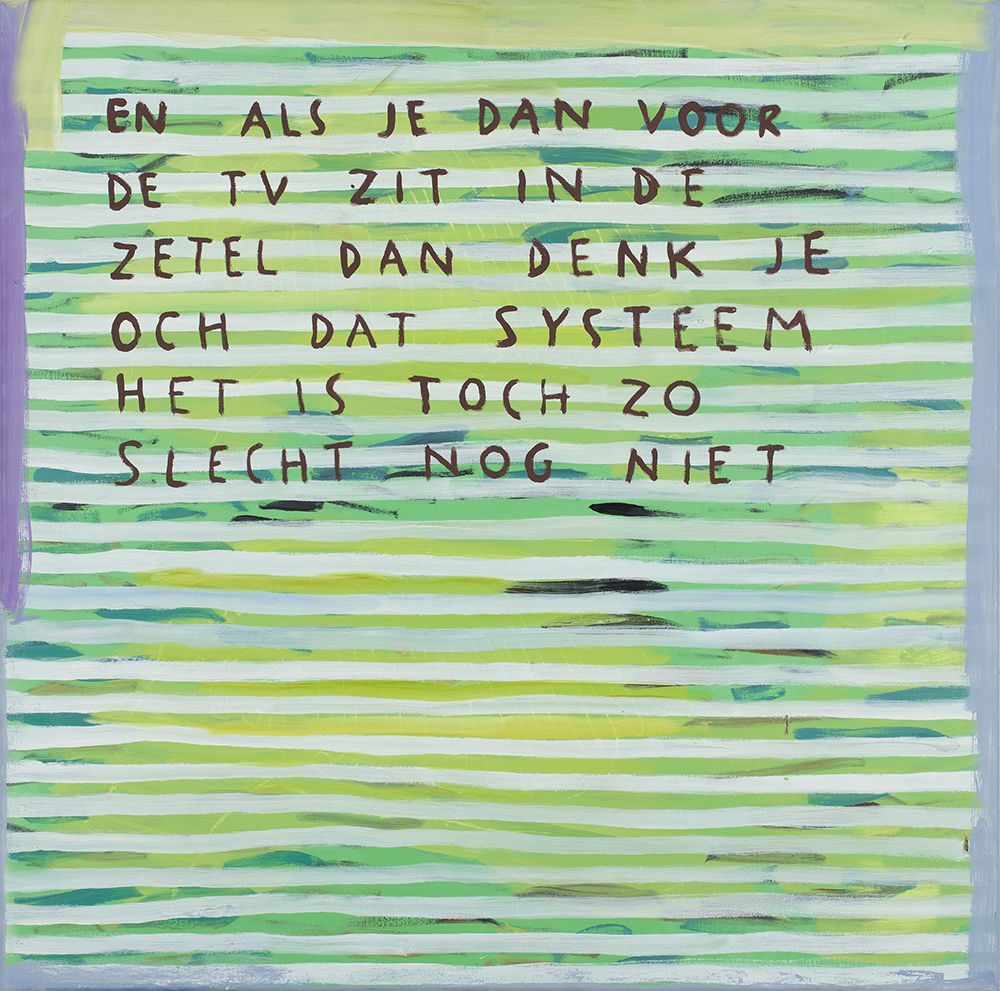 EN ALS JE DAN VOOR
DE TV ZIT IN DE
ZETEL DAN DENK JE
OCH DAT SYSTEEM
HET IS TOCH ZO
SLECHT NOG NIET